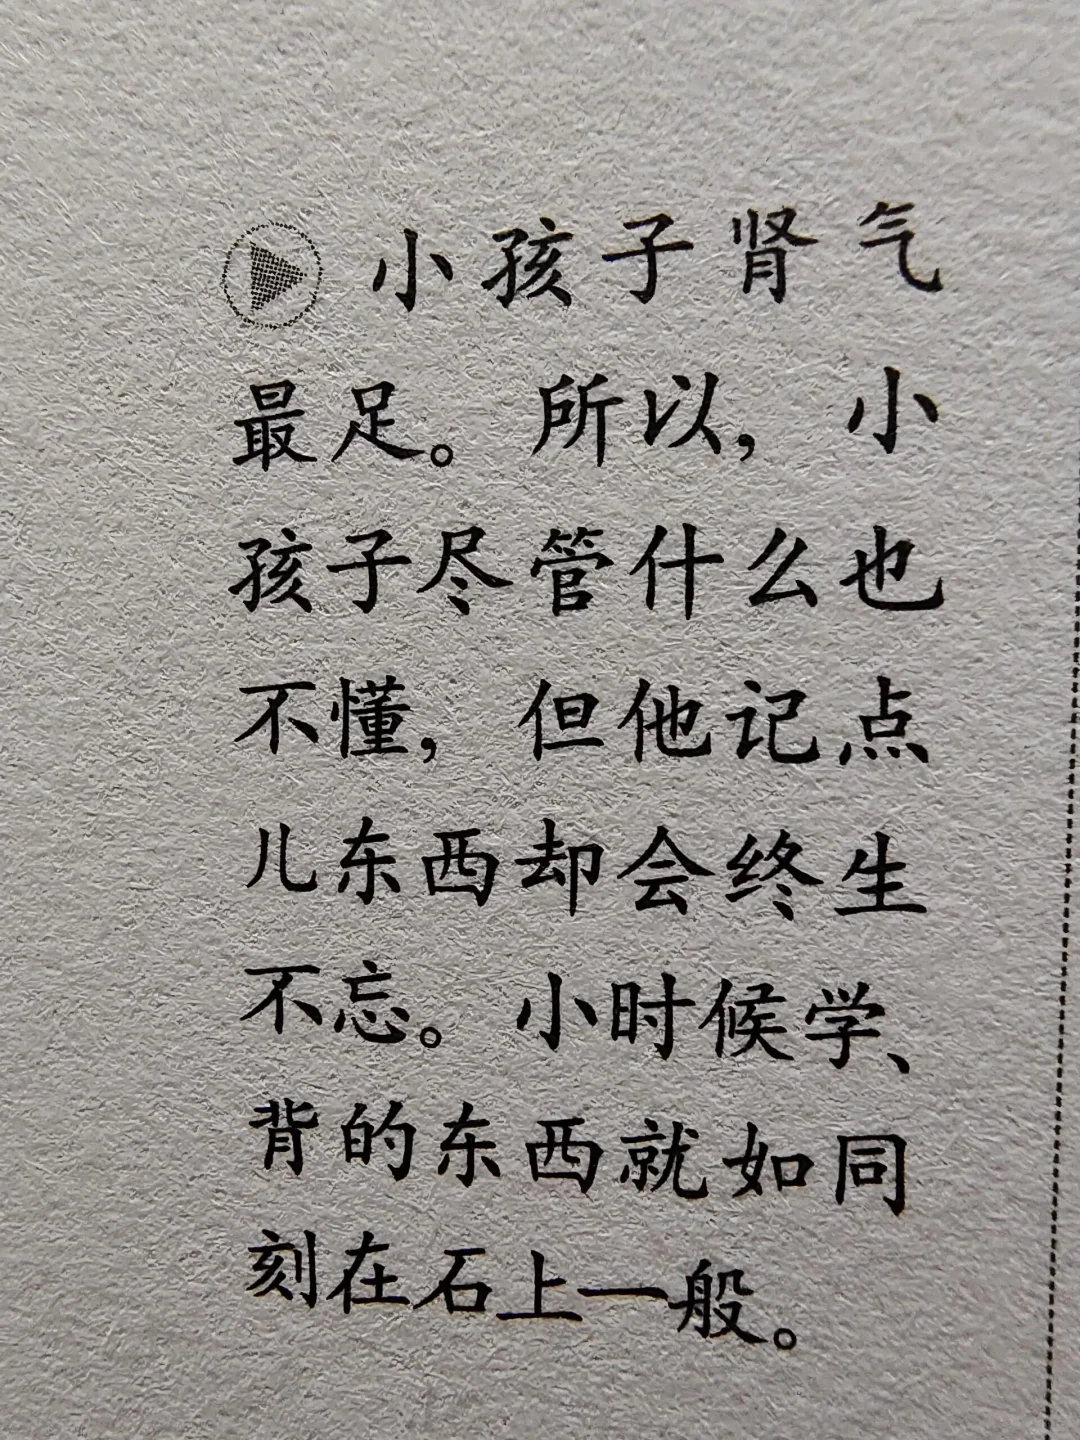 小孩子肾气
最足。所以，小
孩子尽管什么也
不懂，但他记点
儿东西却会终生
不忘。小时候学、
背的东西就如同
刻在石上一般。